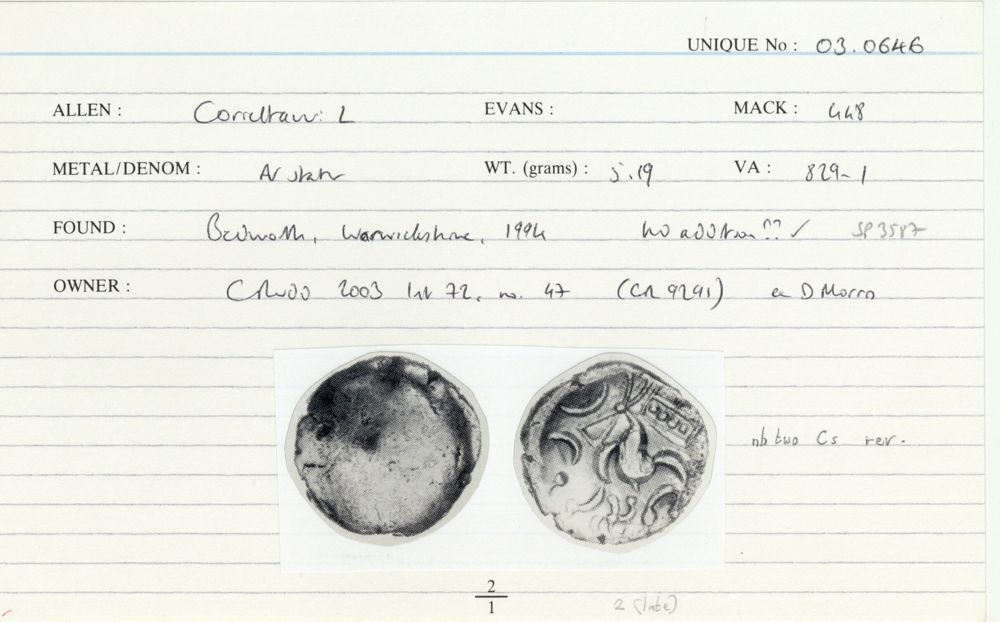 UNIQUE No : 03.0646
ALLEN : Corieltauvi L EVANS : MACK : 448
METAL/DENOM : AV stater WT. (grams) : 5.19 VA : 829-1
FOUND : Bedworth, Warwickshire, 1994 no addition?? ✓ SP3587
OWNER : CRudd 2003 list 72, no. 47 (CR 9291) ex D Morris
nb two Cs rev.
2
1
2 (late)